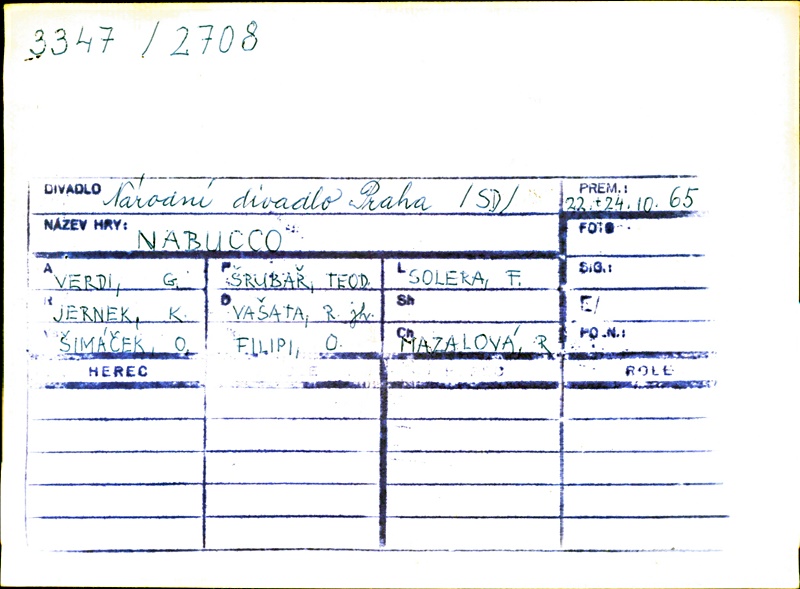 3347 / 2708
DIVADLO Národní divadlo Praha /SD/ PREM.: 22.+24.10. 65
NÁZEV HRY: NABUCCO FOTO
A VERDI, G. P ŠRUBAŘ, TEOD. L SOLERA, F. SIG.:
R JERNEK, K. D VAŠATA, R. jh. Sh E/
V ŠIMÁČEK, O. FILIPI, O. Ch MAZALOVÁ, R PO.N.:
HEREC ROLE